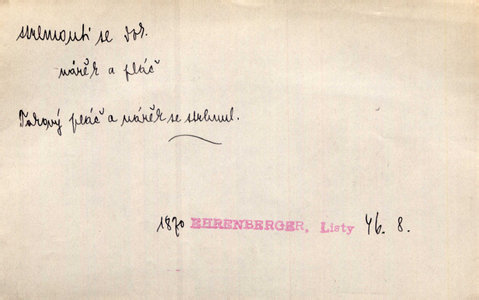 strhnouti se dok.
nářek a pláč
Takový pláč a nářek se strhnul.
1870 EHRENBERGER, Listy 46. 8.